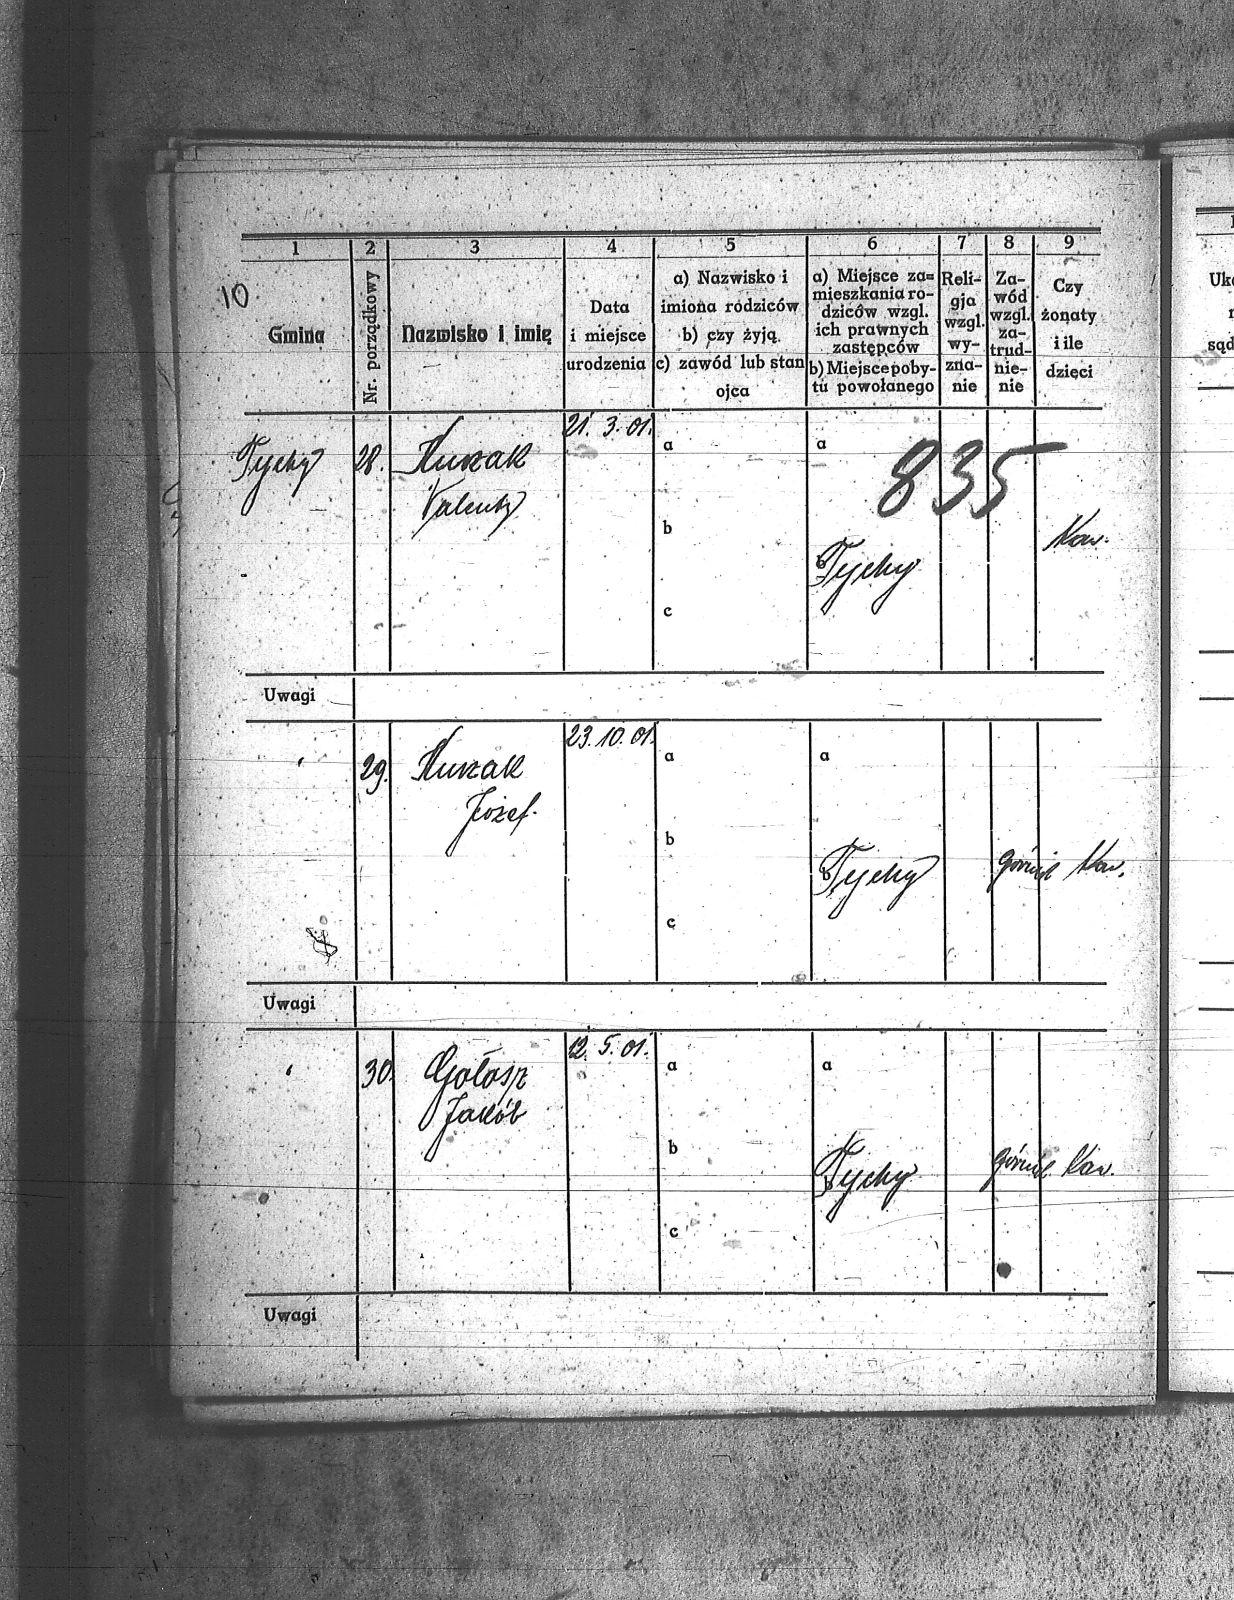 1 2 3 4 5 6 7 8 9
10
Gmina
Nr. porządkowy
Nazwisko i imię
Data
i miejsce
urodzenia
a) Nazwisko i
imiona rodziców
b) czy żyją
c) zawód lub stan
ojca
a) Miejsce za=
mieszkania ro-
dziców wzgl.
ich prawnych
zastępców
b) Miejsce poby-
tu powołanego
Reli-
gja
wzgl.
wy-
zna-
nie
Za-
wód
wzgl.
za-
trud-
nie-
nie
Czy
żonaty
i ile
dzieci
Tychy 28. Kurzak 21. 3. 01. a a
835
Valenty
b
Kaw.
b
Tychy
c
Uwagi
29. Kurzak 23. 10. 01. a a
Józef.
b
b
Tychy górnik Kaw.
c
Uwagi
30. 12. 5. 01. a a
Jakób
b
b
Tychy górnik. Kaw.
c
Uwagi